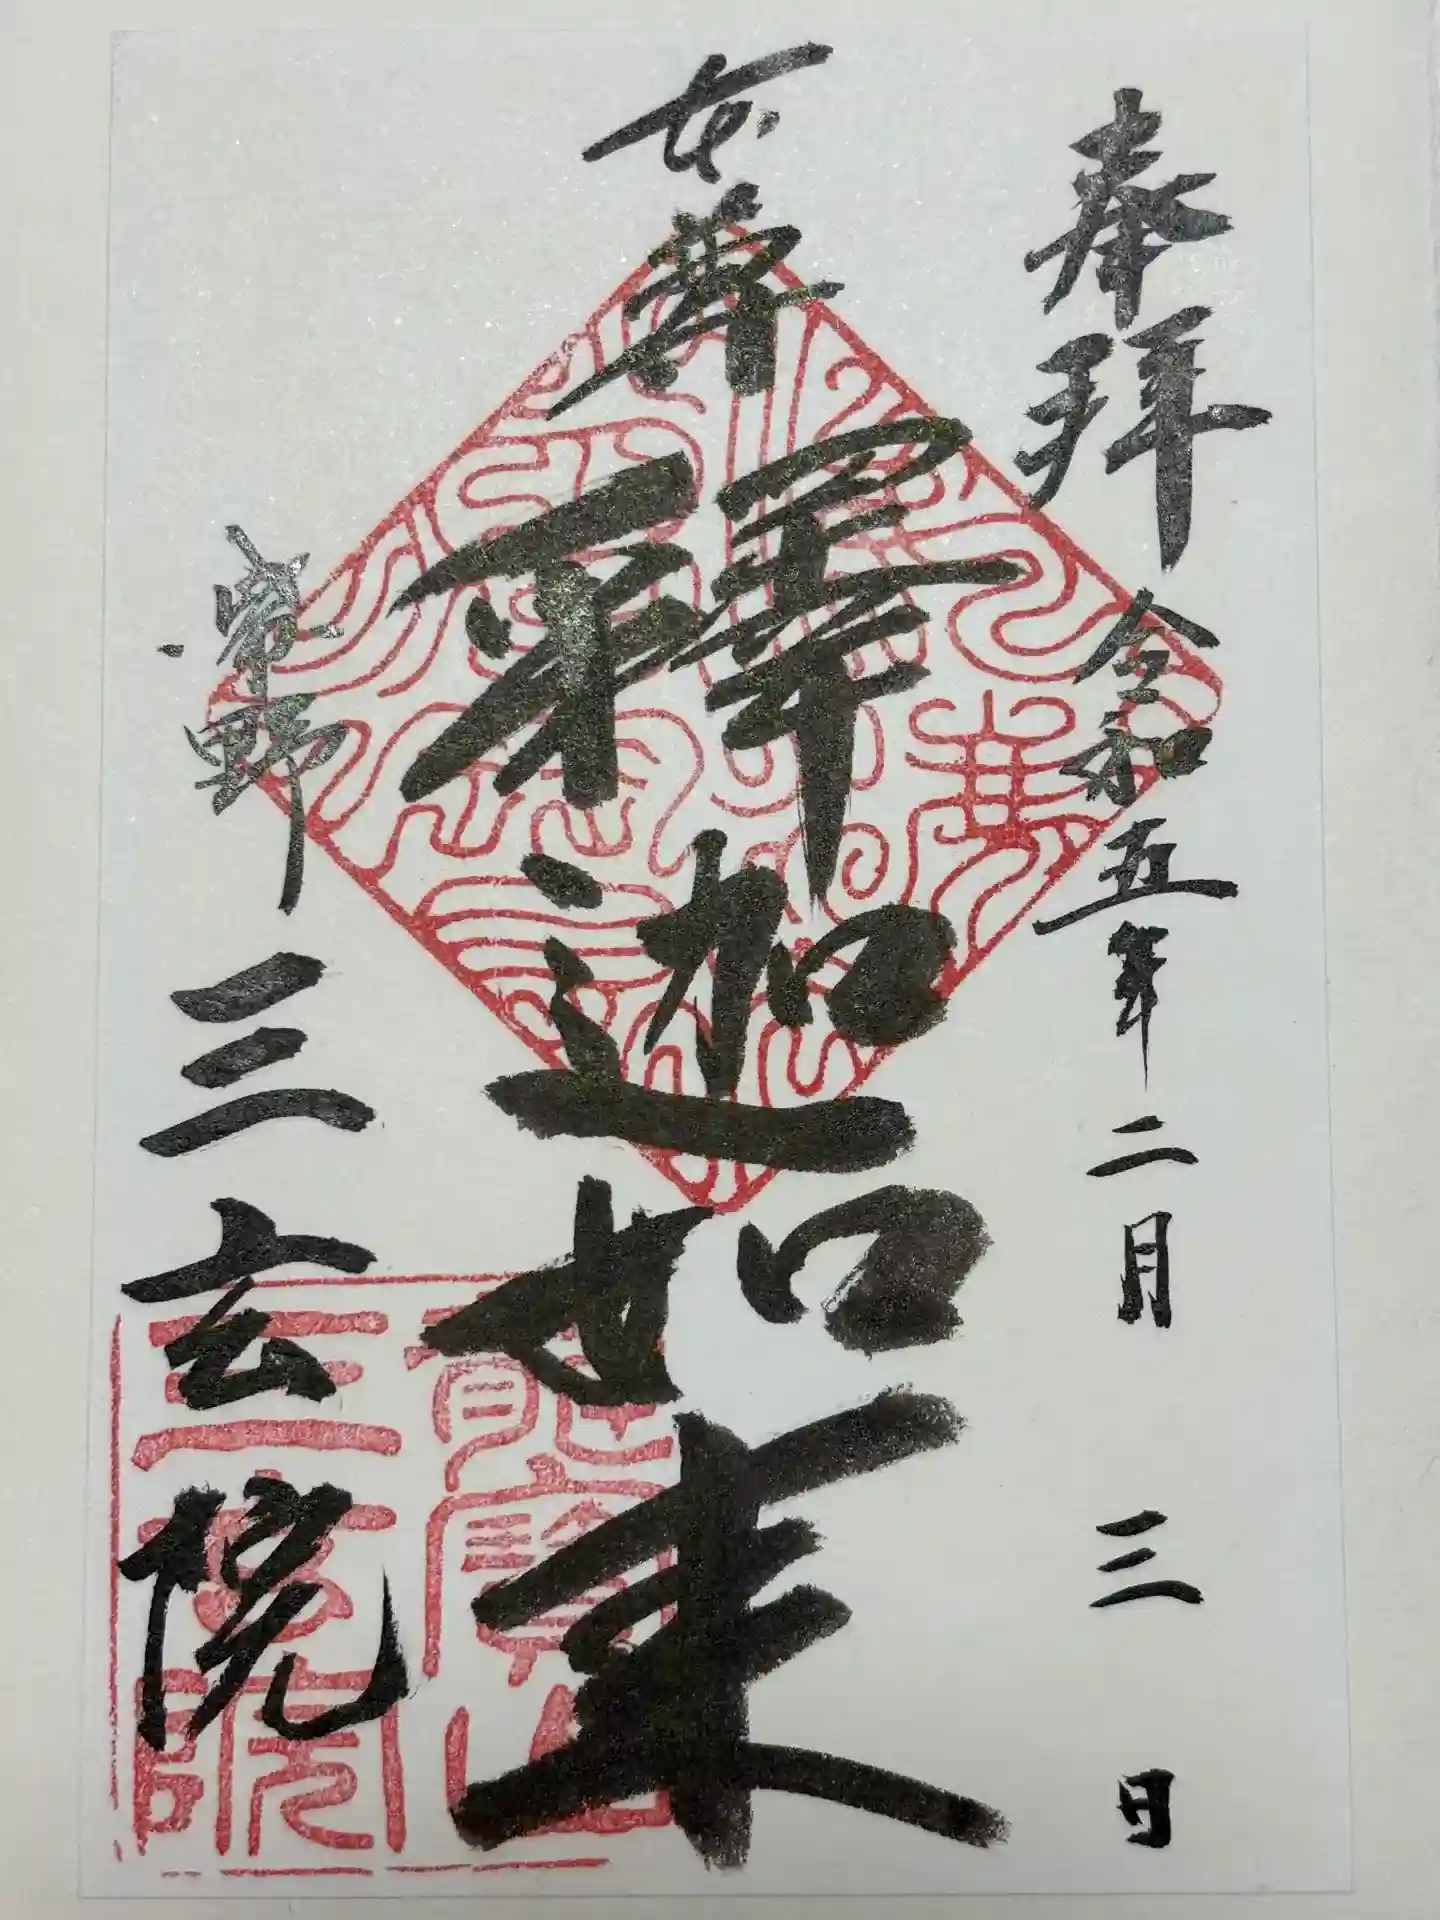 奉拝 令和五年二月三日
本尊
釋迦如来
紫野 三玄院
龍寳山
三玄院